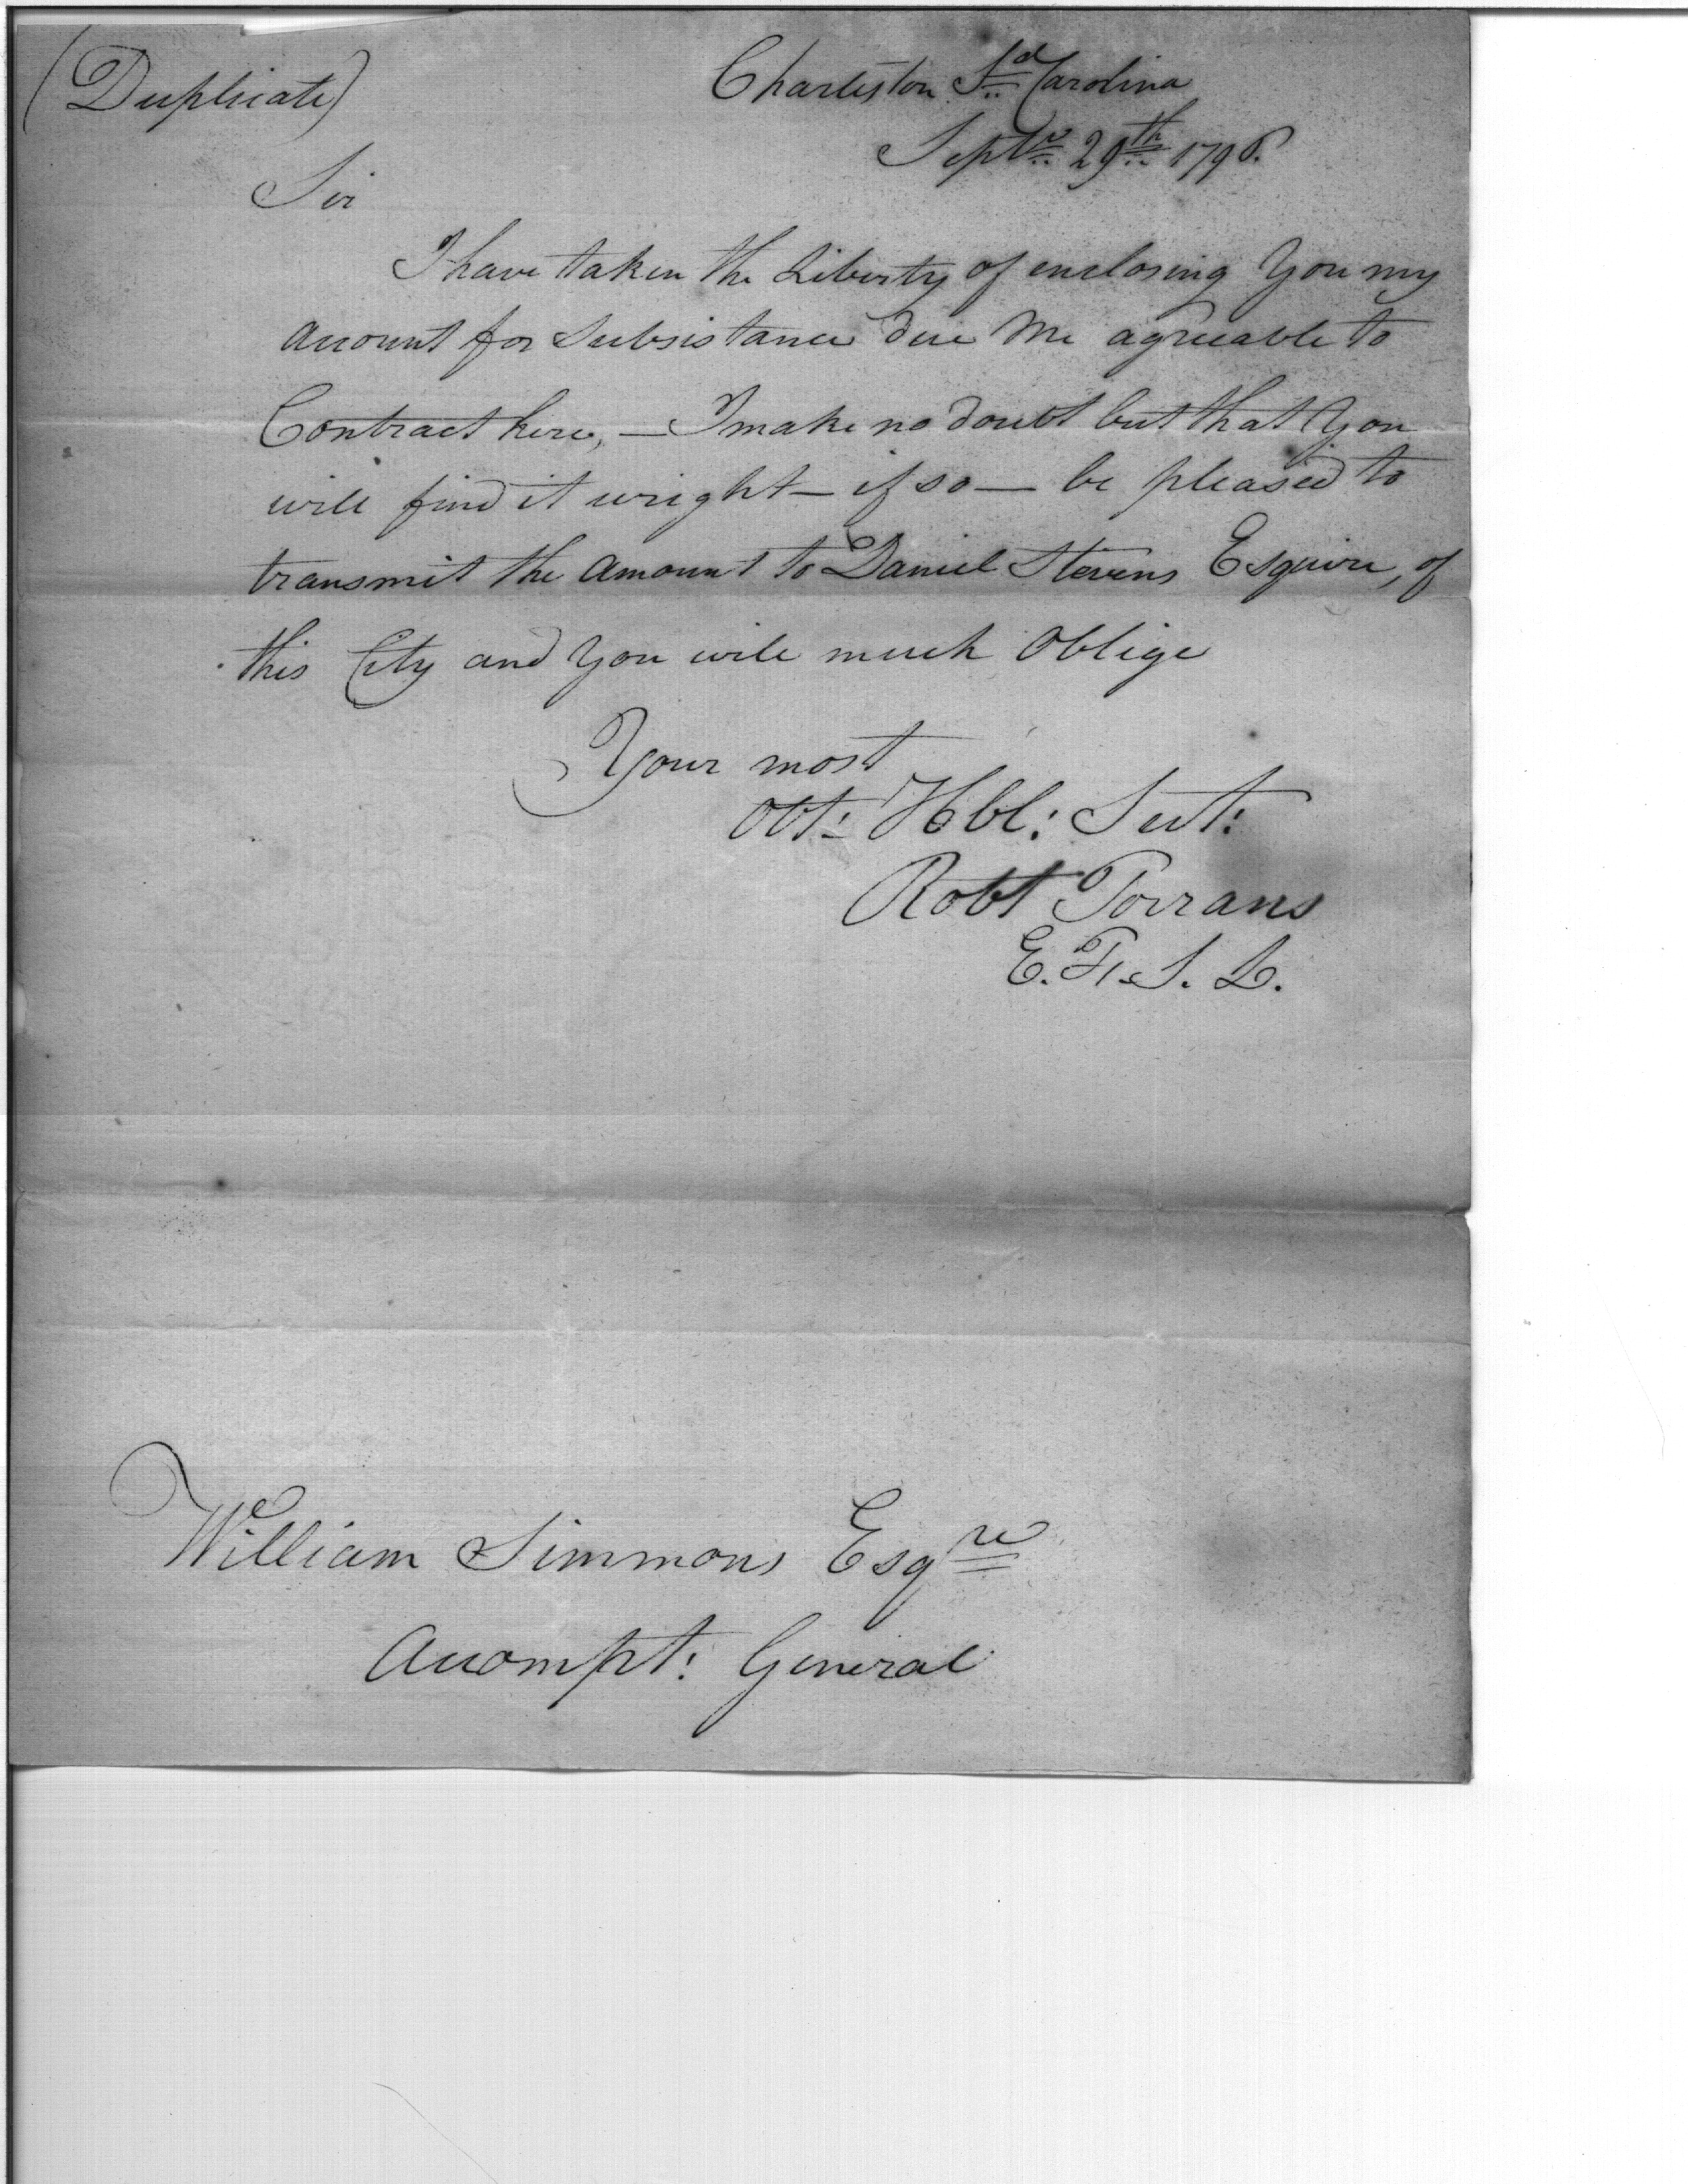 (Duplicate)
Charleston So. Carolina
Septr. 29th 1796.
Sir
I have taken the Liberty of enclosing You my
account for Subsistance due Me agreeable to
Contract here, — I make no doubt but that You
will find it wright — if so — be pleased to
transmit the Amount to Daniel Stevens Esquire, of
this City and You will much Oblige
Your most
Obt: Hbl: Svt:
Robt Torrans
E. F. S. L.
William Simmons Esqre
Accompt: General